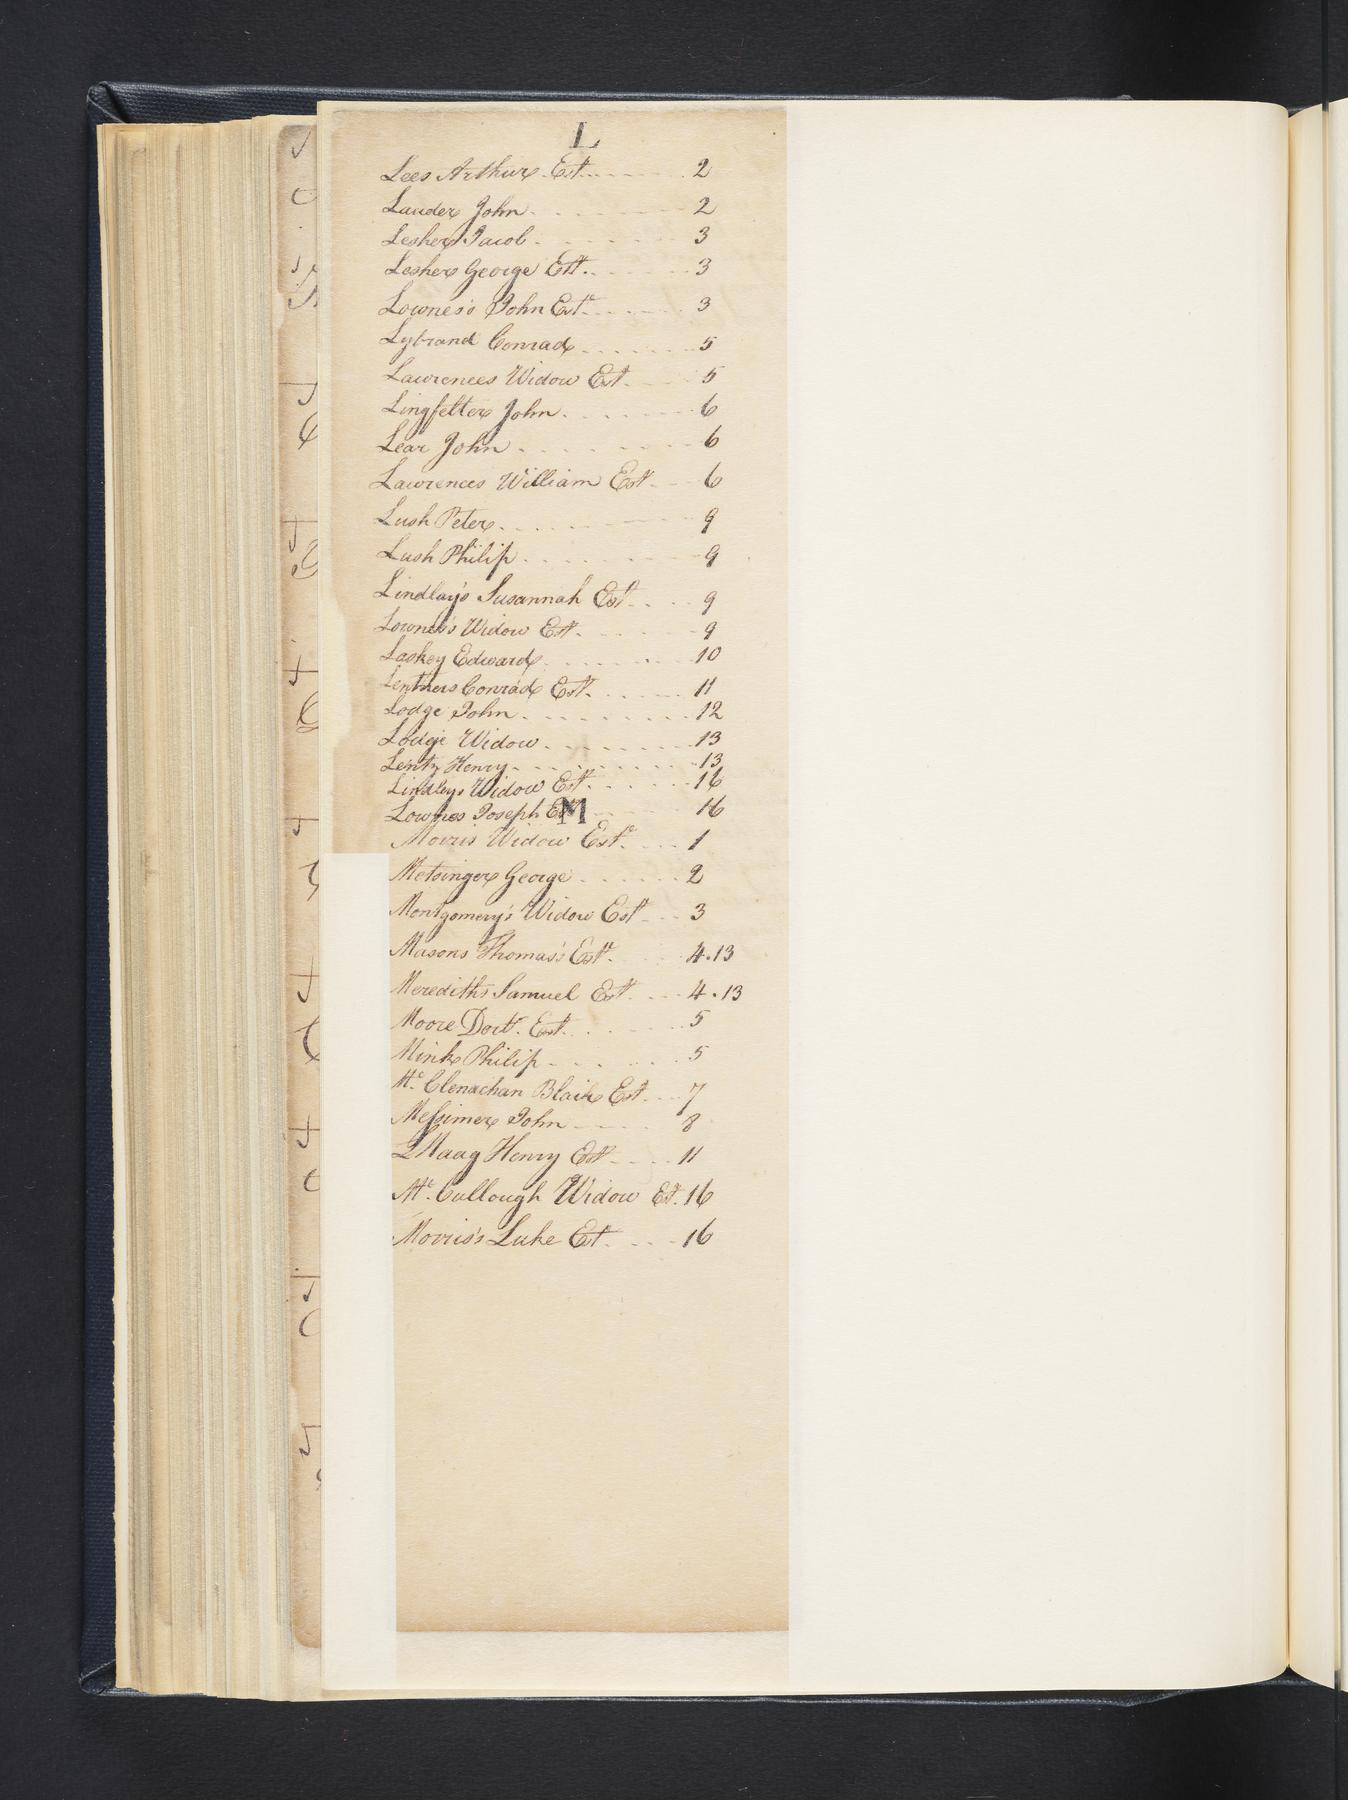 L
Lees Arthur Est. 2
Lauder John 2
Lesher Jacob 3
Lesher George Est. 3
Lownes's John Est. 3
Lybrand Conrad 5
Lawrences Widow Est. 5
Lingfelter John 6
Lear John 6
Lawrences William Est. 6
Lush Peter 9
Lush Philip 9
Lindlay's Susannah Est. 9
Lownes's Widow Est. 9
Laskey Edward 10
Lentners Conrad Est. 11
Lodge John 12
Lodge Widow 13
Lentz Henry 13
Lindleys Widow Est. 16
Lownes Joseph Est. 16
M
Morris Widow Est. 1
Metsinger George 2
Montgomery's Widow Est. 3
Masons Thomas's Est. 4.13
Merediths Samuel Est. 4.13
Moore Doct. Est. 5
Mink Philip 5
Mc. Clenachan Blair Est. 7
Messimer John 8
Maag Henry Est. 11
Mc. Cullough Widow Est. 16
Morris's Luke Est. 16